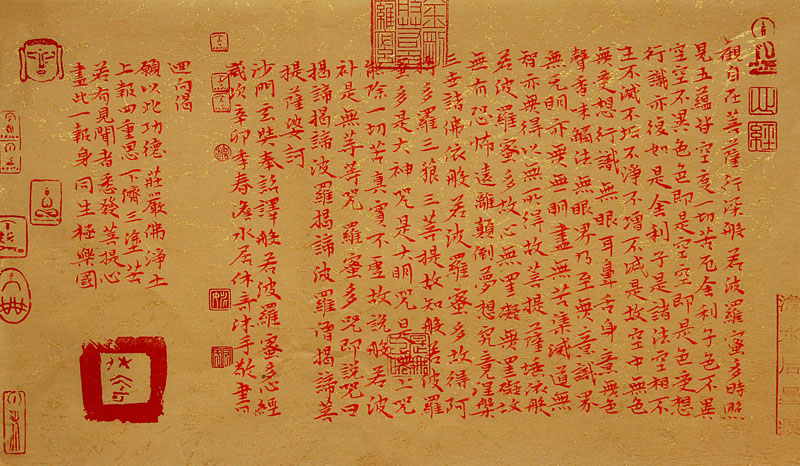 觀自在菩薩行深般若波羅蜜多時照
見五蘊皆空度一切苦厄舍利子色不異
空空不異色色即是空空即是色受想
行識亦復如是舍利子是諸法空相不
生不滅不垢不淨不增不減是故空中無色
無受想行識無眼耳鼻舌身意無色
聲香味觸法無眼界乃至無意識界
無无明亦無無明盡無苦集滅道無
智亦無得以無所得故菩提薩埵依般
若波羅蜜多故心無罣礙無罣礙故
無有恐怖遠離顛倒夢想究竟涅槃
三世諸佛依般若波羅蜜多故得阿
耨多羅三藐三菩提故知般若波羅
蜜多是大神咒是大明咒是無上咒
能除一切苦真實不虛故說般若波
補是無等等咒 羅蜜多咒即說咒曰
揭諦揭諦波羅揭諦波羅僧揭諦菩
提薩婆訶
沙門玄奘奉詔譯般若波羅蜜多心經
歲次辛卯季春澹水居休沐手敬書
迴向偈
願以此功德莊嚴佛淨土
上報四重恩下濟三塗苦
若有見聞者悉發菩提心
盡此一報身同生極樂國